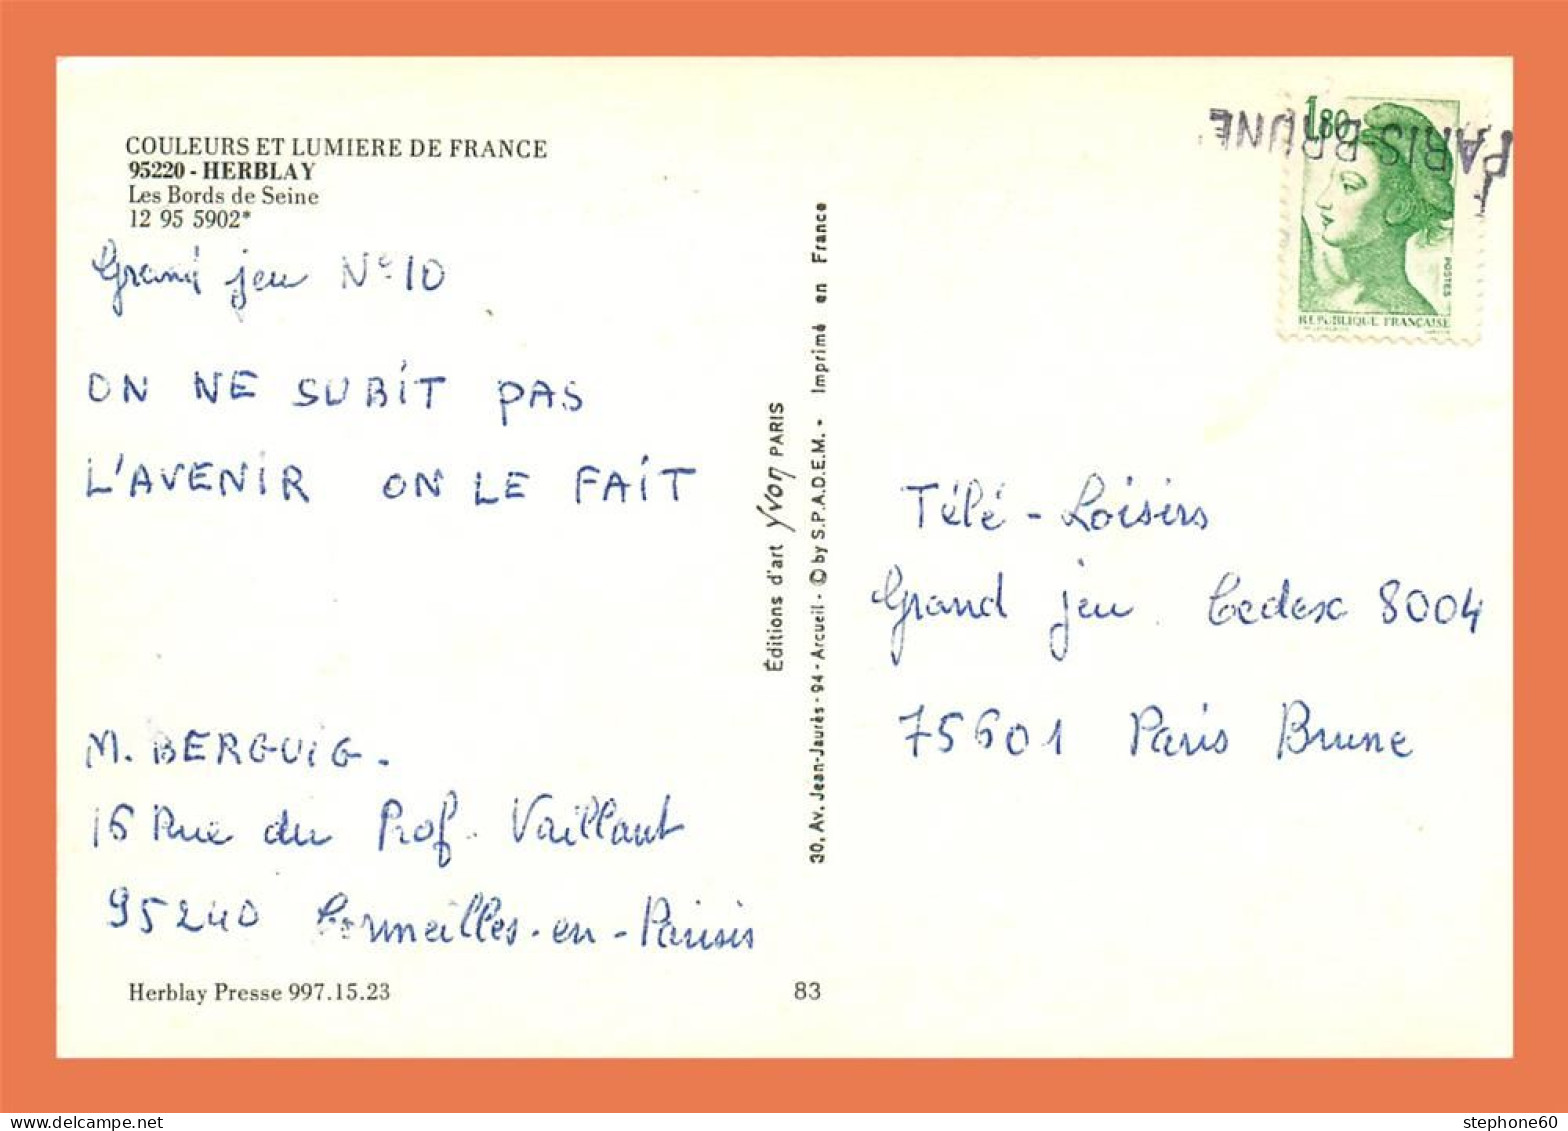 COULEURS ET LUMIERE DE FRANCE
95220 - HERBLAY
Les Bords de Seine
12 95 5902*
Grand jeu N° 10
ON NE SUBIT PAS
L'AVENIR ON LE FAIT
M. BERGUIG.
16 Rue du Prof. Vaillant
95240 Cormeilles-en-Parisis
Herblay Presse 997.15.23
83
Éditions d'art Yvon PARIS
30, Av. Jean-Jaurès - 94 - Arcueil - © by S.P.A.D.E.M. - Imprimé en France
1,80
POSTES
REPUBLIQUE FRANÇAISE
PARIS-BRUNE
Télé-Loisirs
Grand jeu Cedex 8004
75601 Paris Brune
stephone60